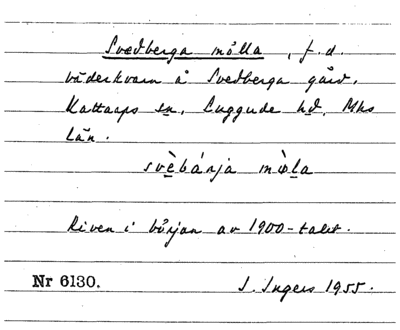 Svedberga mölla, f.d.
väderkvarn å Svedberga gård,
Kattarps sn, Luggude hd, Mhs
län.
svèbárja mø̀la
Riven i början av 1900-talet.
Nr 6130. I. Ingers 1955.